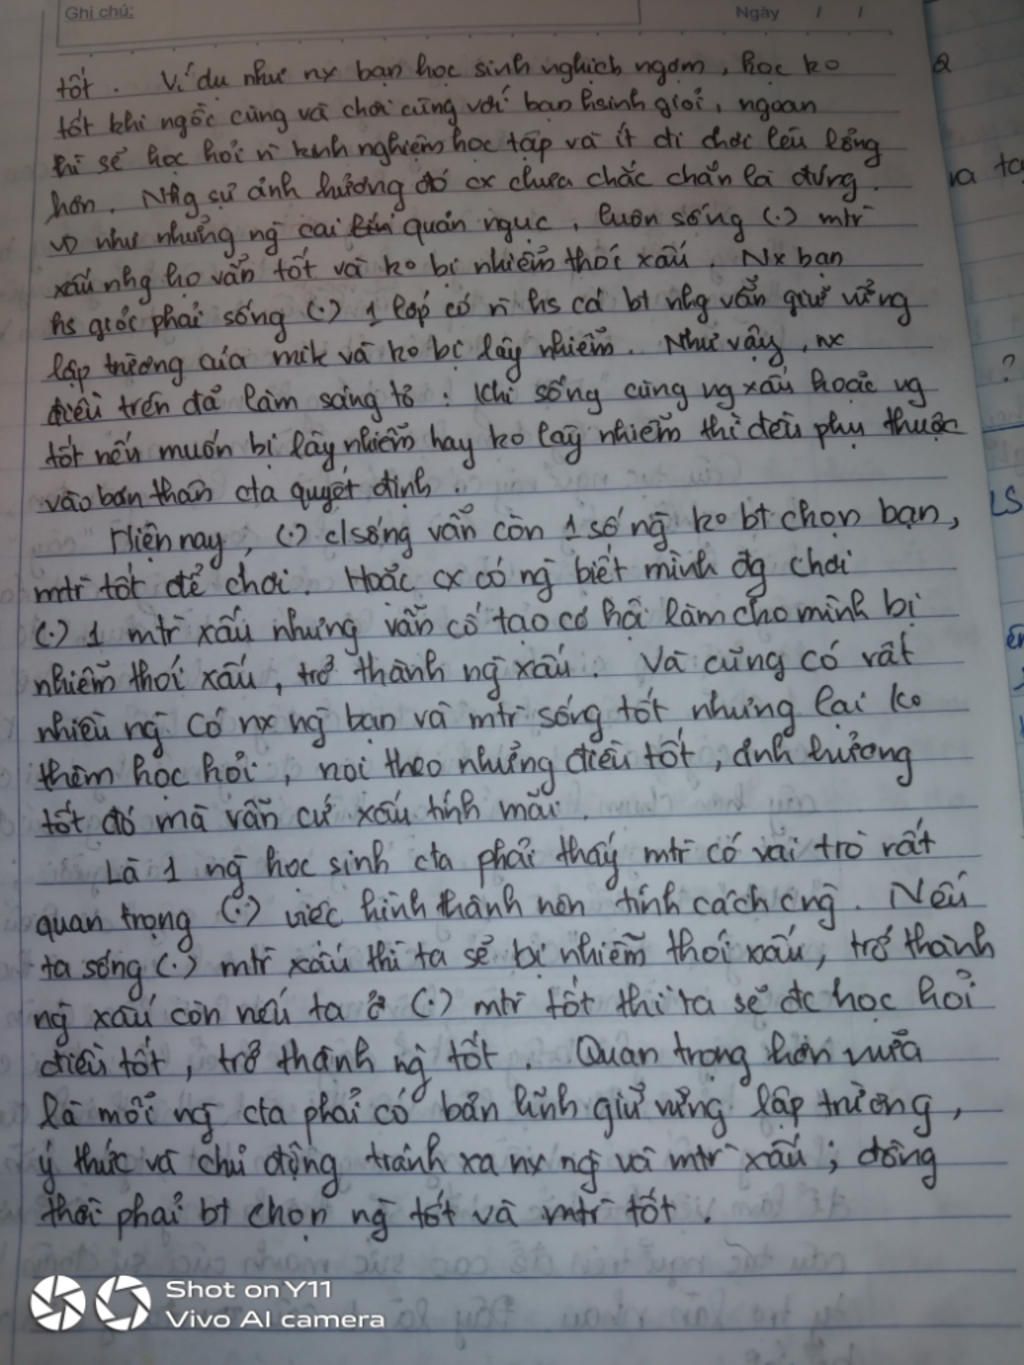 Ghi chú:
Ngày / /
tốt. Ví dụ như nx bạn học sinh nghịch ngợm, học ko
tốt khi ngồi cùng và chơi cùng với bạn hsinh giỏi, ngoan
thì sẽ học hỏi n kinh nghiệm học tập và ít đi chơi lêu lổng
hơn. Nhg sự ảnh hưởng đó cx chưa chắc chắn là đúng.
VD như những ng̀ cai quản ngục, luôn sống (.) mtr̀
xấu nhg họ vẫn tốt và ko bị nhiễm thói xấu. Nx bạn
hs giỏi phải sống (.) 1 lớp có n̄ hs cá bt nhg vẫn giữ vững
lập trường của mik và ko bị lây nhiễm. Như vậy, nx
điều trên đã làm sáng tỏ: Khi sống cùng ng xấu hoặc ng
tốt nếu muốn bị lây nhiễm hay ko lây nhiễm thì đều phụ thuộc
vào bản thân cta quyết định.
Hiện nay, (.) c/sống vẫn còn 1 số ng̀ ko bt chọn bạn,
mtr̀ tốt để chơi. Hoặc cx có ng̀ biết mình đg chơi
(.) 1 mtr̀ xấu nhưng vẫn cố tạo cơ hội làm cho mình bị
nhiễm thói xấu, trở thành ng̀ xấu. Và cũng có rất
nhiều ng̀ có nx ng̀ bạn và mtr̀ sống tốt nhưng lại ko
thèm học hỏi, noi theo những điều tốt, ảnh hưởng
tốt đó mà vẫn cứ xấu tính mãi.
Là 1 ng̀ học sinh cta phải thấy mtr̀ có vai trò rất
quan trọng (.) việc hình thành nên tính cách cng̀. Nếu
ta sống (.) mtr̀ xấu thì ta sẽ bị nhiễm thói xấu, trở thành
ng̀ xấu còn nếu ta ở (.) mtr̀ tốt thì ta sẽ đc học hỏi
điều tốt, trở thành ng̀ tốt. Quan trọng hơn nữa
là mỗi ng̀ cta phải có bản lĩnh giữ vững lập trường,
ý thức và chủ động tránh xa nx ng̀ và mtr̀ xấu; đồng
thời phải bt chọn ng̀ tốt và mtr̀ tốt.
Shot on Y11
Vivo AI camera